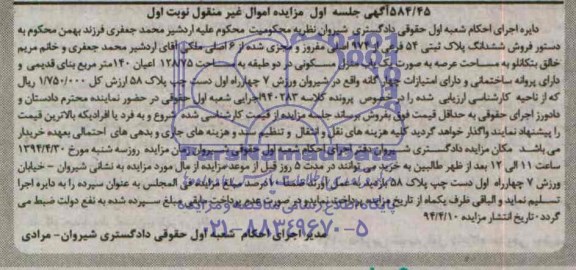 ۵۸۴/۴۵آگهی جلسه اول مزایده اموال غیر منقول نوبت اول
دایره اجرای احکام شعبه اول حقوقی دادگستری شیروان نظریه محکومیت محکوم علیه اردشیر محمد جعفری فرزند بهمن محکوم به
دستور فروش ششدانگ پلاک ثبتی ۵۴ فرعی از ۹۷۴ اصلی مفروز و مجزی شده از ۶ اصلی ملکی آقای اردشیر محمد جعفری و خانم مریم
خالق بتکانلو به مساحت عرصه به صورت یک مسکونی در دو طبقه به مساحت ۱۲۸۷۵ اعیان ۱۴۰متر مربع بنای قدیمی و
دارای پروانه ساختمانی و دارای امتیازات چهارگانه واقع در شیروان ورزش ۷ چهارراه اول دست چپ پلاک ۵۸ ارزش کل ۱/۷۵۰/۰۰۰ ریال
که از ناحیه کارشناسی ارزیابی شده را در خصوص پرونده کلاسه ۹۴۰۲۸۳ اجرایی شعبه اول حقوقی در حضور نماینده محترم دادستان و
دادورز اجرای حقوقی به حداقل قیمت فوق بفروش برساند جلسه مزایده از قیمت کارشناسی شده شروع و به فرد یا افرادیکه بالاترین قیمت
را پیشنهاد نمایند واگذار خواهد گردید کلیه هزینه های نقل و انتقال و تنظیم سند و هزینه های جاری و بدهی های احتمالی بعهده خریدار
می باشد مکان مزایده دادگستری شیروان دفتر اجرای احکام شعبه اول حقوقی شیروان زمان مزایده روزسه شنبه مورخ ۱۳۹۴/۴/۳۰
ساعت ۱۱ الی ۱۲ بعد از ظهر طالبین به خرید می توانند در مدت ۵ روز قبل از موعد مزایده از مال مورد مزایده به نشانی شیروان - خیابان
ورزش ۷ چهارراه اول دست چپ پلاک ۵۸ بازدید به عمل آورند ۱۰درصد مبلغ مزایده فی المجلس به عنوان سپرده را به دایره اجرا
تسلیم نماید و الباقی ظرف یکماه از تاریخ مزایده پرداخت نماید و در صورت عدم پرداخت مابقی مبلغ سپرده شده به نفع دولت ضبط می
گردد.تاریخ انتشار مزایده ۹۴/۴/۱۰
مدیر اجرای احکام شعبه اول حقوقی دادگستری شیروان- مرادی
ParsNamadData
پایگاه اطلاع رسانی مناقصه و مزایده
۰۲۱-۸۸۳۴۹۶۷۰-۵